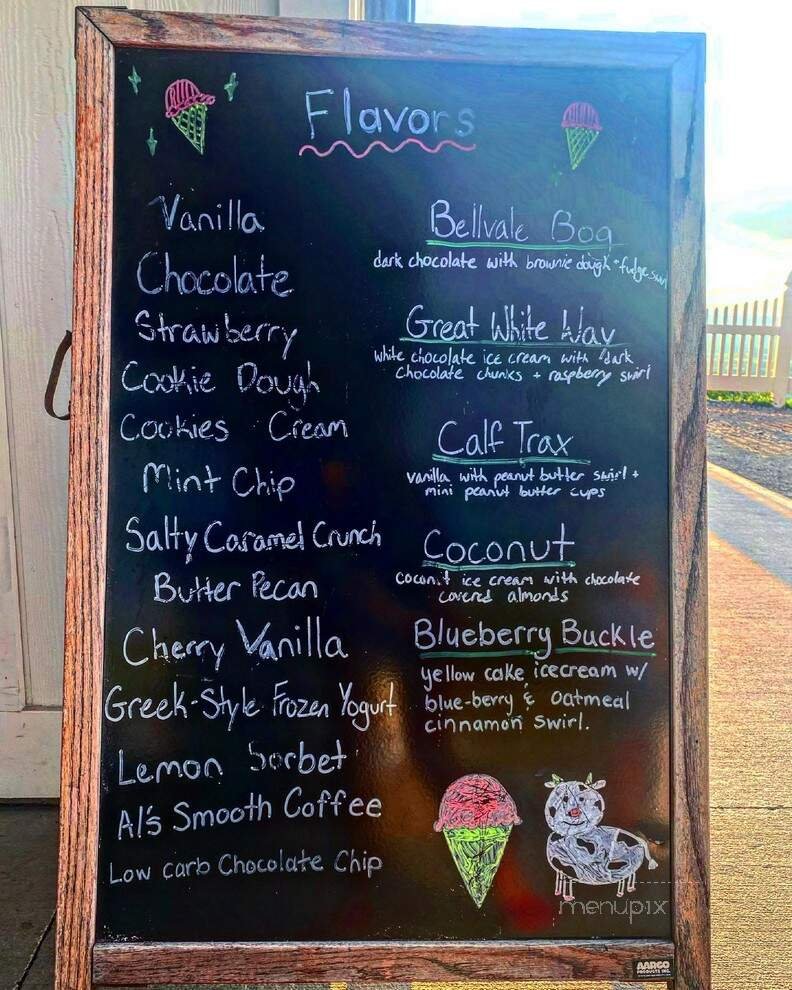 Flavors
Vanilla
Chocolate
Strawberry
Cookie Dough
Cookies Cream
Mint Chip
Salty Caramel Crunch
Butter Pecan
Cherry Vanilla
Greek-Style Frozen Yogurt
Lemon Sorbet
Al's Smooth Coffee
Low carb Chocolate Chip
Bellvale Bog
dark chocolate with brownie dough + fudge swirl
Great White Way
white chocolate ice cream with dark
chocolate chunks + raspberry swirl
Calf Trax
vanilla with peanut butter swirl +
mini peanut butter cups
Coconut
coconut ice cream with chocolate
covered almonds
Blueberry Buckle
yellow cake icecream w/
blue-berry & oatmeal
cinnamon swirl.
menupix
AARCO
PRODUCTS INC.